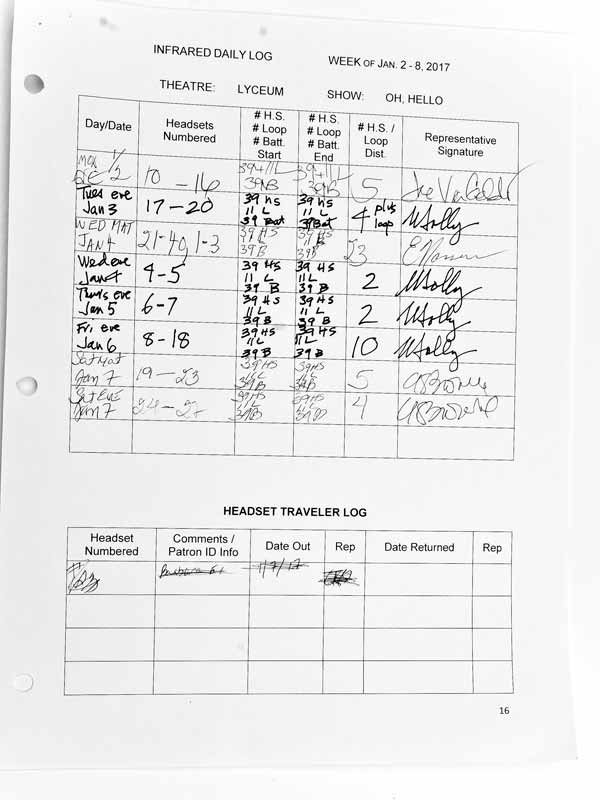 INFRARED DAILY LOG WEEK OF JAN. 2 - 8, 2017
THEATRE: LYCEUM SHOW: OH, HELLO
Day/Date Headsets Numbered # H.S. # Loop # Batt. Start # H.S. # Loop # Batt. End # H.S. / Loop Dist. Representative Signature
MON 1/2 10 - 16 39+11L 39NB 39+11L 39NB 5
Tues eve Jan 3 17 - 20 39 HS 11 L 39 Bat 39 HS 11 L 39 Bat 4 plus loop WJolly
WED MAT JAN 4 21-40, 1-3 39 HS 11 L 39 B 39 HS 11 L 39 B 23
Wed eve Jan 4 4-5 39 HS 11 L 39 B 39 HS 11 L 39 B 2 WJolly
Thurs eve Jan 5 6-7 39 HS 11 L 39 B 39 HS 11 L 39 B 2 WJolly
Fri eve Jan 6 8-18 39 HS 11 L 39 B 39 HS 11 L 39 B 10 WJolly
Sat Mat Jan 7 19 - 23 39HS 11 L 39B 39HS 11 L 39B 5
Sat Eve Jan 7 24 - 27 39HS 11 L 39B 39HS 11 L 39B 4
HEADSET TRAVELER LOG
Headset Numbered Comments / Patron ID Info Date Out Rep Date Returned Rep
1/7/17
16